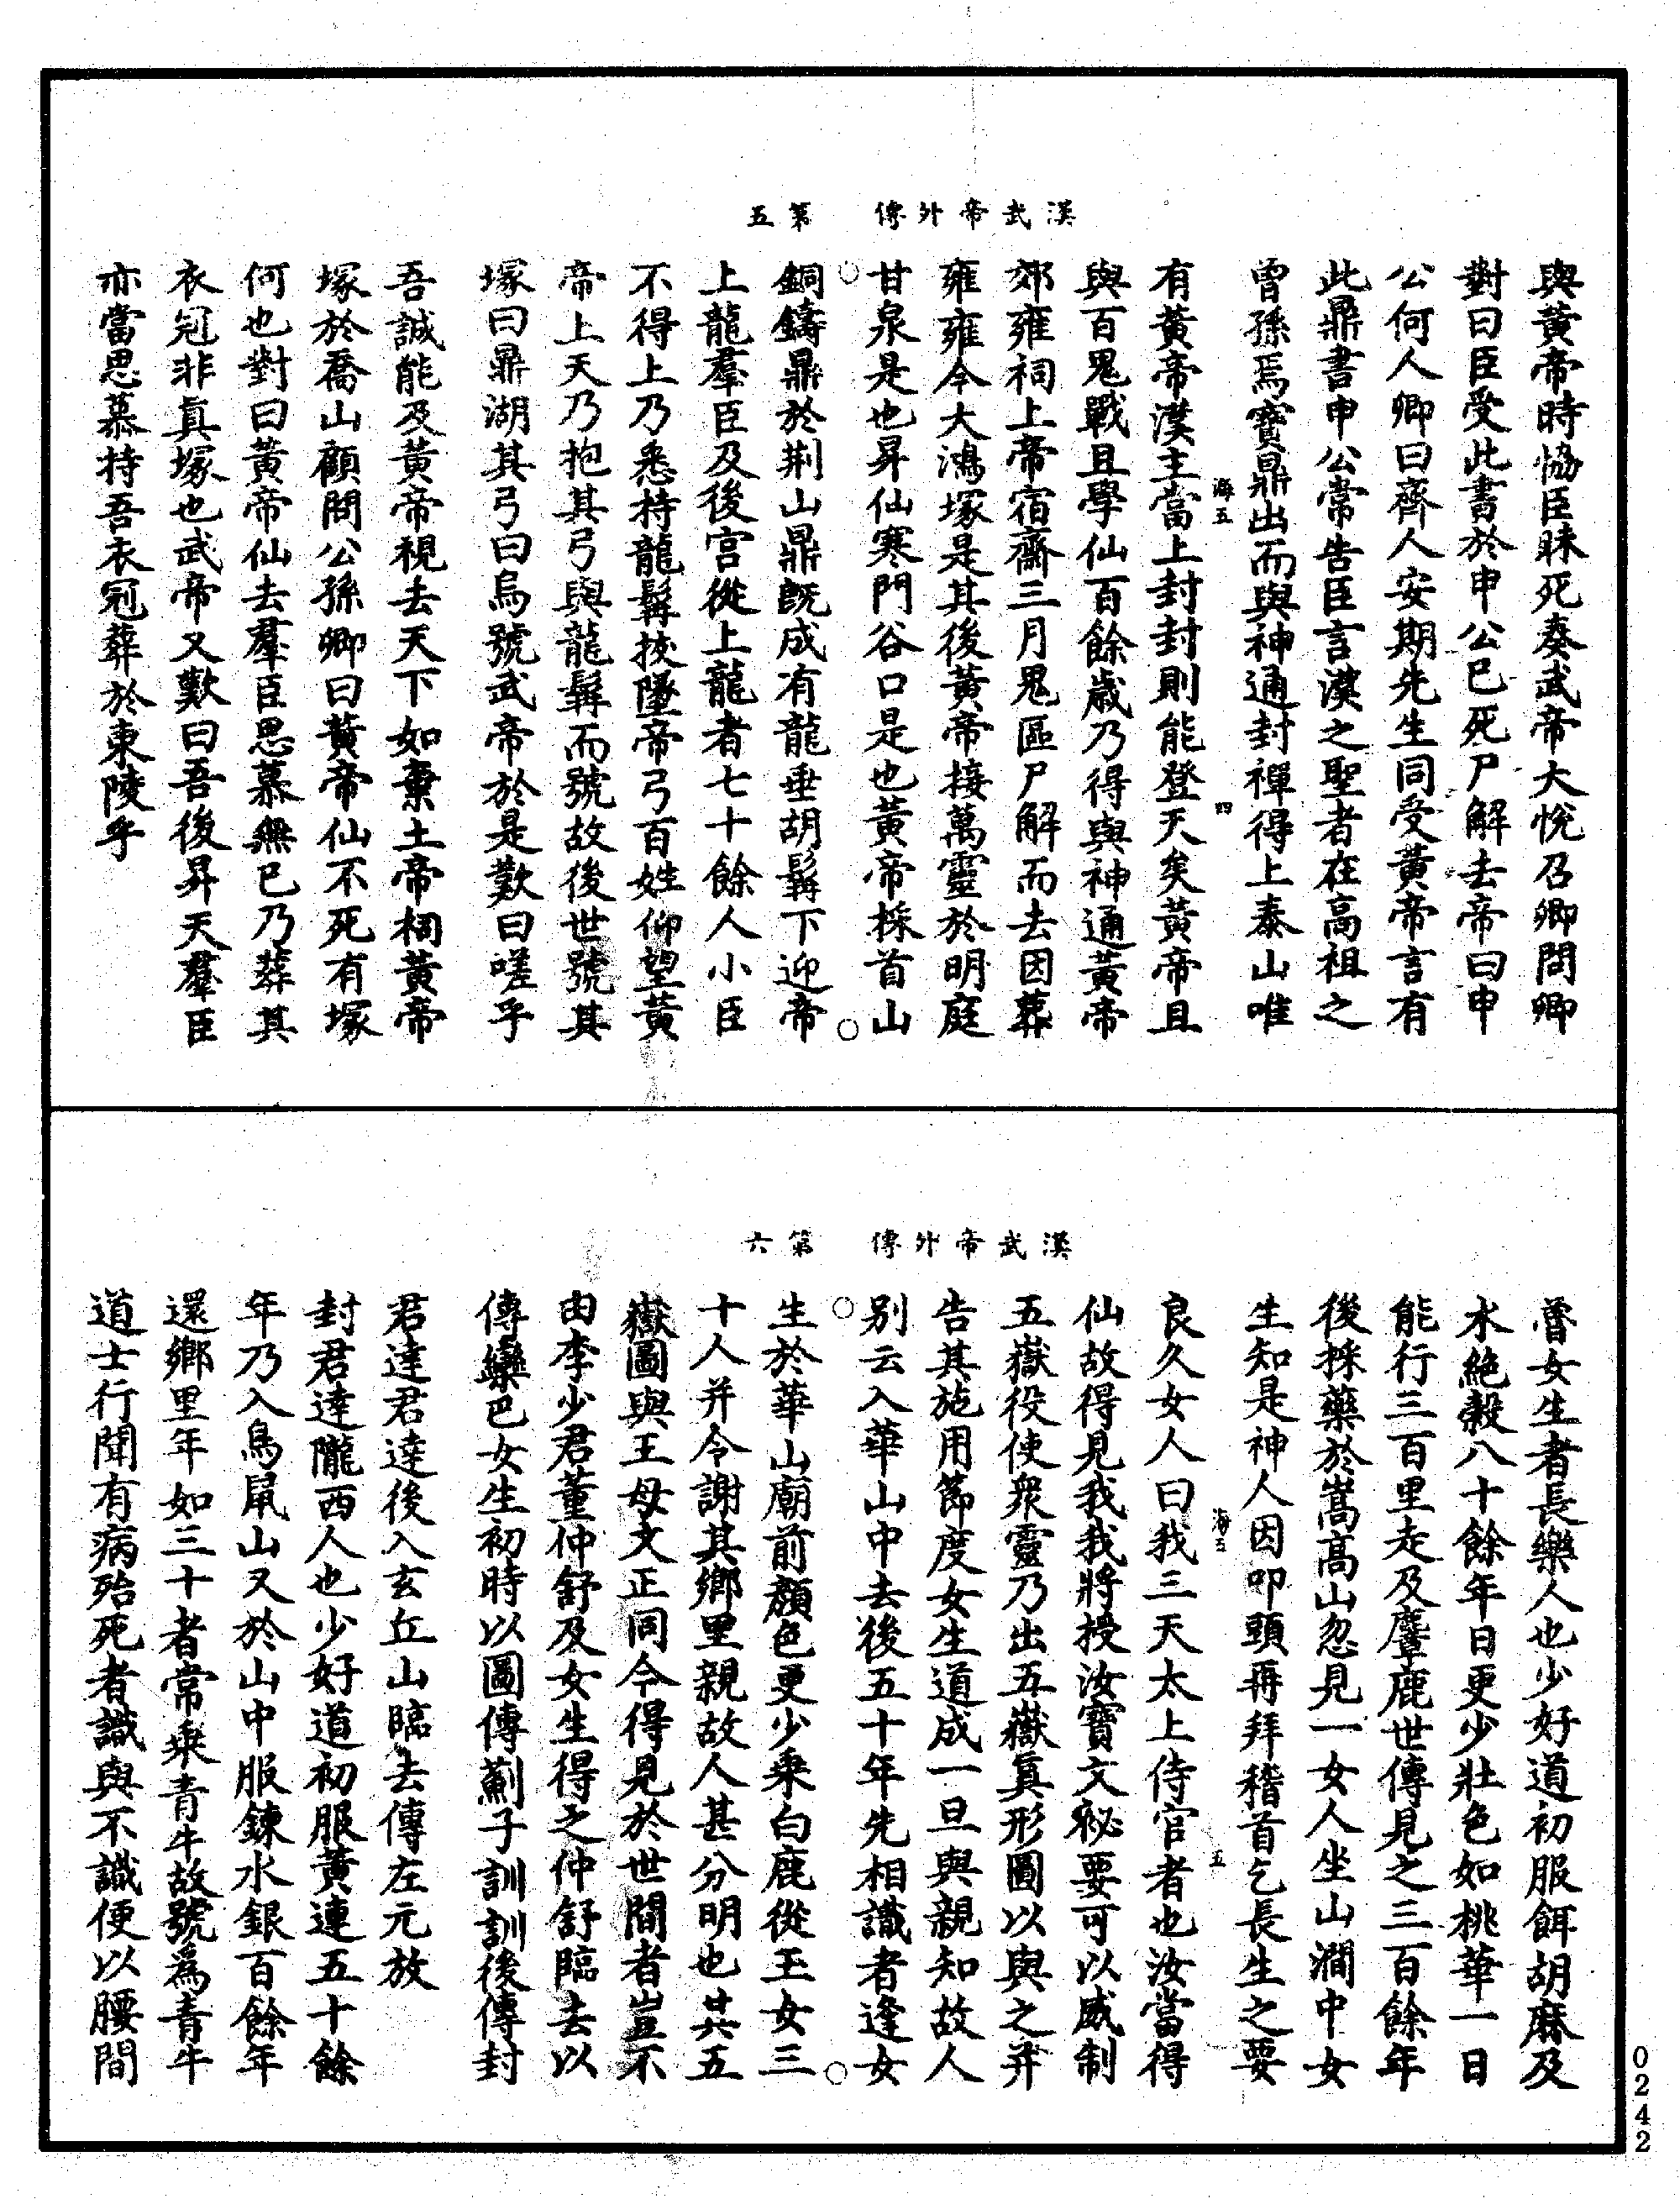 漢武帝外傳　第五
與黃帝時協臣昧死奏武帝大悅召卿問卿
對曰臣受此書於申公已死尸解去帝曰申
公何人卿曰齊人安期先生同受黃帝言有
此鼎書申公常告臣言漢之聖者在高祖之
曾孫焉寶鼎出而與神通封禪得上泰山唯
海五　四
有黃帝漢主當上封封則能登天矣黃帝且
與百鬼戰且學仙百餘歲乃得與神通黃帝
郊雍祠上帝宿齋三月鬼區尸解而去因葬
雍雍今大鴻塚是其後黃帝接萬靈於明庭
甘泉是也昇仙寒門谷口是也黃帝採首山
銅鑄鼎於荆山鼎旣成有龍垂胡髯下迎帝
上龍羣臣及後宮從上龍者七十餘人小臣
不得上乃悉持龍髯拔墮帝弓百姓仰望黃
帝上天乃抱其弓與龍髯而號故後世號其
塚曰鼎湖其弓曰烏號武帝於是歎曰嗟乎
吾誠能及黃帝視去天下如棄土帝祠黃帝
塚於喬山顧問公孫卿曰黃帝仙不死有塚
何也對曰黃帝仙去羣臣思慕無已乃葬其
衣冠非眞塚也武帝又歎曰吾後昇天羣臣
亦當思慕持吾衣冠葬於東陵乎
漢武帝外傳　第六
魯女生者長樂人也少好道初服餌胡麻及
水絶穀八十餘年日更少壯色如桃華一日
能行三百里走及麞鹿世傳見之三百餘年
後採藥於嵩高山忽見一女人坐山澗中女
生知是神人因叩頭再拜稽首乞長生之要
海五　五
良久女人曰我三天太上侍官者也汝當得
仙故得見我我將授汝寶文秘要可以威制
五嶽役使衆靈乃出五嶽眞形圖以與之并
告其施用節度女生道成一旦與親知故人
别云入華山中去後五十年先相識者逢女
生於華山廟前顏色更少乘白鹿從玉女三
十人并令謝其鄉里親故人甚分明也其五
嶽圖與王母文正同今得見於世間者豈不
由李少君董仲舒及女生得之仲舒臨去以
傳欒巴女生初時以圖傳薊子訓訓後傳封
君達君達後入玄丘山臨去傳左元放
封君達隴西人也少好道初服黃連五十餘
年乃入鳥鼠山又於山中服鍊水銀百餘年
還鄉里年如三十者常乘青牛故號爲青牛
道士行聞有病殆死者識與不識便以腰間
0242